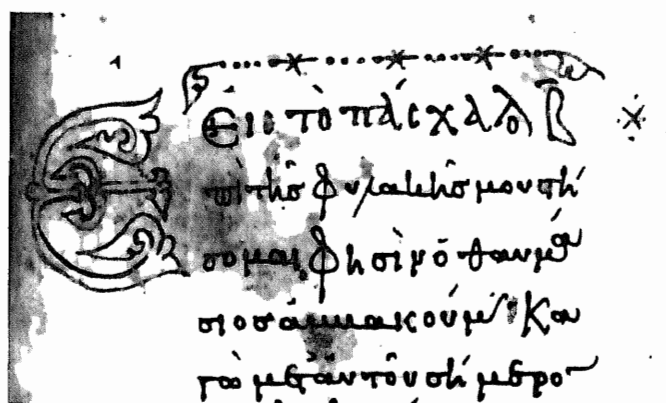 Εἰς τὸ πάσχα λό Β
Ἐπὶ τῆς φυλακῆς μου στή
σομαι, φησὶν ὁ θαυμά
σιος ἀμβακούμ· κα
γὼ μετ' αὐτοῦ σήμερο